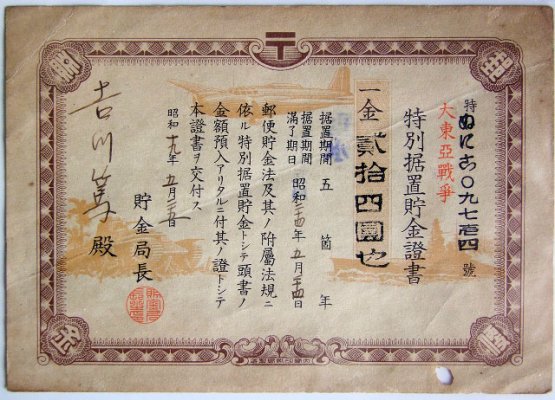 特 〇九七 四 號
大東亞戰爭
特別据置貯金證書
一金貳拾四圓也
据置期間 五箇年
据置期間
滿了期日 昭和二四年五月二四日
郵便貯金法及其ノ附屬法規ニ
依ル特別据置貯金トシテ頭書ノ
金額預入アリタルニ付其ノ證トシテ
本證書ヲ交付ス
昭和十九年五月 日
貯金局長
吉川 殿